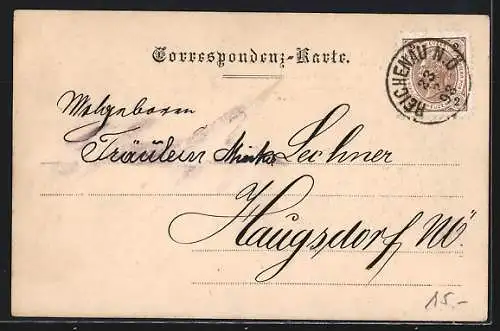 Correspondenz-Karte.
REICHENAU N.Ö
23
98
2
Wolgeboren
Fräulein Minka Lechner
Haugsdorf
15.-